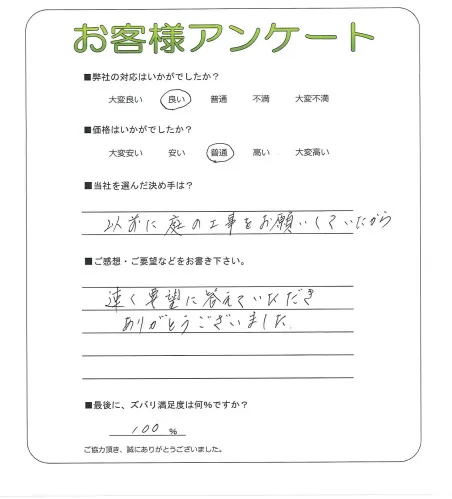 お客様アンケート
■弊社の対応はいかがでしたか?
大変良い 良い 普通 不満 大変不満
■価格はいかがでしたか?
大変安い 安い 普通 高い 大変高い
■当社を選んだ決め手は?
以前に庭の工事をお願いしていたから
■ご感想・ご要望などをお書き下さい。
速く要望に答えていただき
ありがとうございました
■最後に、ズバリ満足度は何%ですか?
100 %
ご協力頂き、誠にありがとうございました。